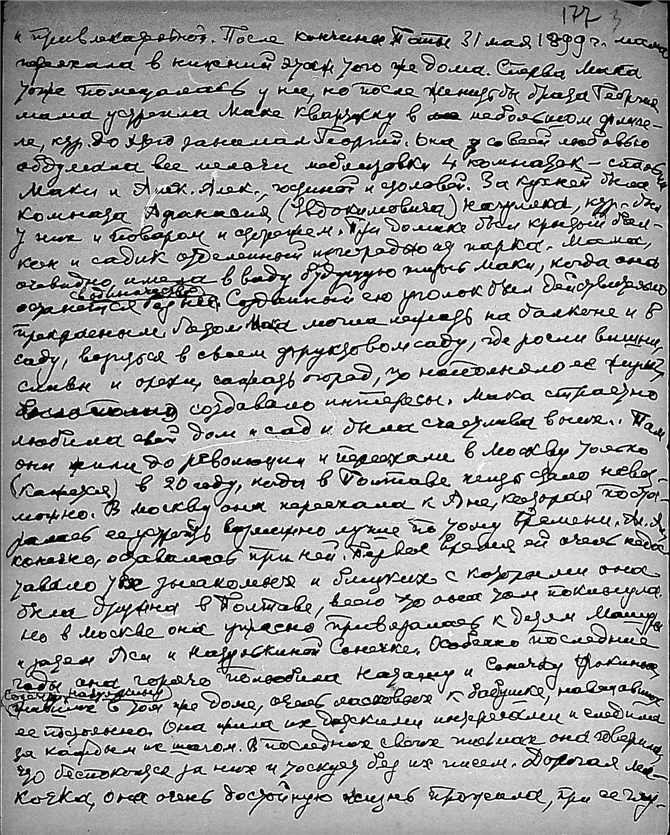 177 3
и привлекательной. После кончины Папы 31 мая 1899 г. мама
переехала в нижний этаж того же дома. Сперва Мака
тоже помещалась у нее, но после женитьбы брата Георгия
мама устроила Маке квартирку в небольшом флиге-
ле, ктр. до того занимал Георгий. Она со всей любовью
обдумала все мелочи меблировки 4 комнаток – спальни
Маки и Алек. Алек., гостиной и столовой. За кухней была
комната Афанасия (Евдокимовича) ктр. был
у них и поваром и сторожем. При домике был крытый бал-
кон и садик отделенный изгородью из парка. Мама,
очевидно, имела в виду будущую жизнь Маки, когда она
останется без нее. Созданный ею уголок был действительно
прекрасным. Летом Мака могла лежать на балконе и в
саду, возиться в своем фруктовом саду, где росли вишни,
сливы и орехи, сажать огород, что наполняло ее жизнь,
создавало интересы. Мака страстно
любила свой дом и сад и была счастлива в них. Там
они жили до революции и переехали в Москву только
(кажется) в 20 году, когда в Полтаве жить стало невоз-
можно. В Москву она переехала к Ане, которая поста-
ралась ее устроить возможно лучше по тому времени.
конечно, оставалась при ней. Первое время ей очень недос-
тавало тех знакомых и близких с которыми она
была дружна в Полтаве, всего что она там покинула
но в Москве она ужасно привязалась к детям Маши
и затем Аси и Сонечке. Особенно последние
годы она горячо полюбила Наташу и Сонечку Фокиных
в том же доме, очень ласковых к бабушке, навещавших
ее постоянно. Она жила их детскими интересами и следила
за каждым их шагом. В последних своих письмах она говорила,
что беспокоится за них и тоскует без их писем. Дорогая Ма-
кочка, она очень достойную жизнь прожила, при ее